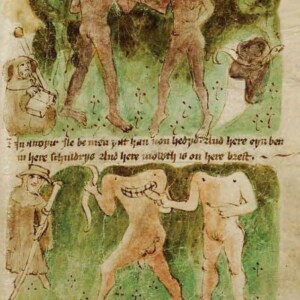 In anoþir ile be men þat han non hedys And here eyn ben
in here schuldrys And here mowth is on here brest